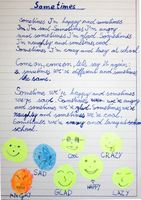 Sometimes
Sometimes I'm happy and sometimes
I'm sad. Sometimes I'm angry
and sometimes I'm glad. Sometimes
I'm naughty and sometimes cool.
Sometimes I'm crazy and lazy at school.
Come on, come on, let's say it again:
sometimes we're different and sometimes
the same.
Sometimes we're happy and sometimes
we're sad. Sometimes we're angry
and sometimes we're glad. Sometimes we're
naughty and sometimes we're cool.
Sometimes we're crazy and lazy at
school.
SAD
COOL
CRAZY
GLAD
HAPPY
LAZY